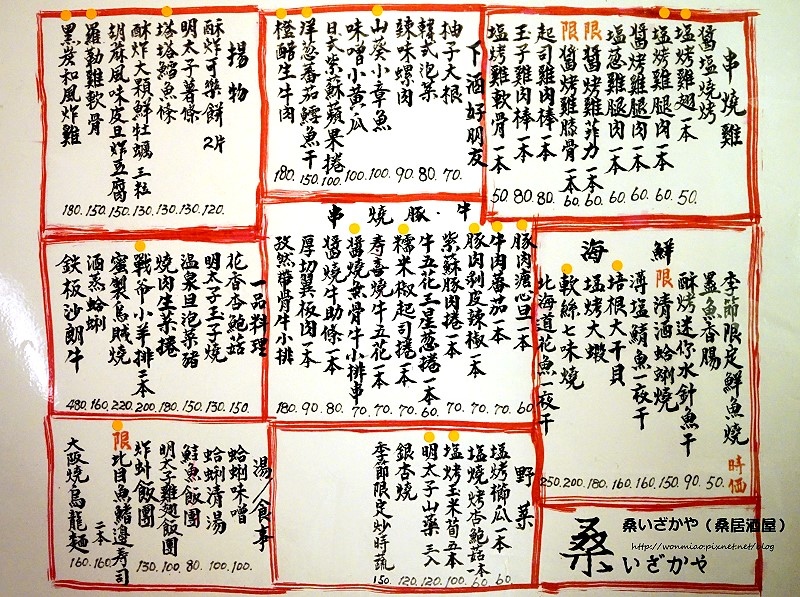 串燒雞
醬塩燒烤
塩烤雞翅一本 50.
塩烤雞腿肉一本 60.
醬烤雞腿肉一本 60.
塩蔥雞腿肉一本 60.
限醬烤雞菲力一本 60.
限醬烤雞膝骨一本 60.
起司雞肉棒一本 80.
玉子雞肉棒一本 80.
塩烤雞軟骨一本 50
下酒好朋友
柚子大根 70.
韓式泡菜 80.
辣味螺肉 90.
山葵小章魚 100.
味噌小黃瓜 100.
日式紫蘇蘋果捲 100.
洋蔥番茄鯷魚干 150.
橙醋生牛肉 180.
揚物
酥炸可樂餅 2片 120.
明太子薯條 130.
塔塔鱈魚條 130.
酥炸大顆鮮牡蠣 三粒 130.
胡麻風味皮旦炸豆腐 150.
羅勒雞軟骨 150.
黑炭和風炸雞 180.
海鮮
季節限定鮮魚燒 時価
墨魚香腸 50.
酥烤迷你水針魚干 90.
限清酒蛤蜊燒 150.
薄塩鯖魚一夜干 160.
培根大干貝 160.
塩烤大蝦 180.
軟絲七味燒 200.
北海道花魚一夜干 250.
串燒.豚.牛
豚肉溏心旦一本 60.
牛肉番茄一本 70.
豚肉剝皮辣椒一本 70.
紫蘇豚肉捲一本 70.
牛五花三星蔥捲一本 60.
糯米椒起司捲一本 70.
壽喜燒牛五花一本 70.
醬燒無骨牛小排串 70.
醬燒牛助條一本 80.
厚切翼板肉一本 90.
孜然帶骨牛小排 180.
一品料理
花香杏鮑菇 150.
明太子玉子燒 130.
溫泉旦泡菜豬 150.
燒肉生菜捲 180.
戰斧小羊排二本 200.
蜜製烏賊燒 220.
酒蒸蛤蜊 160.
鉄板沙朗牛 480.
野菜
塩烤櫛瓜一本 60.
塩燒烤杏鮑菇一本 60.
塩烤玉米筍五本 100.
明太子山藥三入 120.
銀杏燒 120.
季節限定炒時蔬 150.
湯/食事
蛤蜊味噌 100.
蛤蜊清湯 100.
鮭魚飯團 80.
明太子雞翅飯團 100.
炸蚪飯團 130.
限比目魚鰭邊壽司 二本 160.
大阪燒烏龍麵 160.
桑
いざかや
桑いざかや（桑居酒屋）
http://wonmiao.pixnet.net/blog